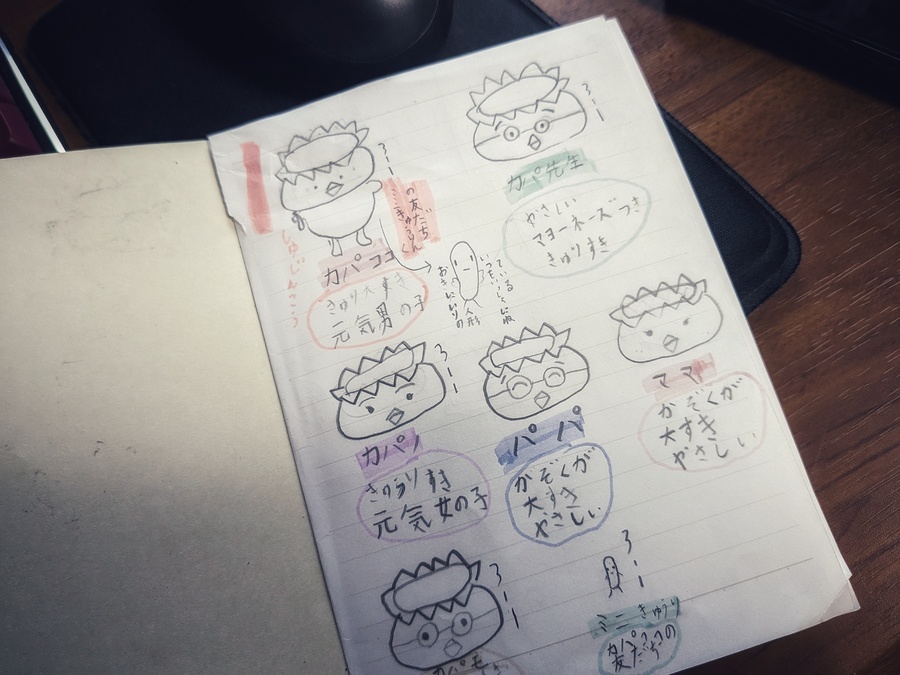 カパココ
きゅうり大すき
元気男の子
しゅじんこう
の友だち
ミニきゅうりくん
いつもいっしょに
ている
おきにいりの
人形
カパ先生
やさしい
マヨーネーズつき
きゅりすき
カパリ
きゅうりすき
元気女の子
パパ
かぞくが
大すき
やさしい
ママ
かぞくが
大すき
やさしい
カパモ
ミニきゅうり
カパココの
友だち